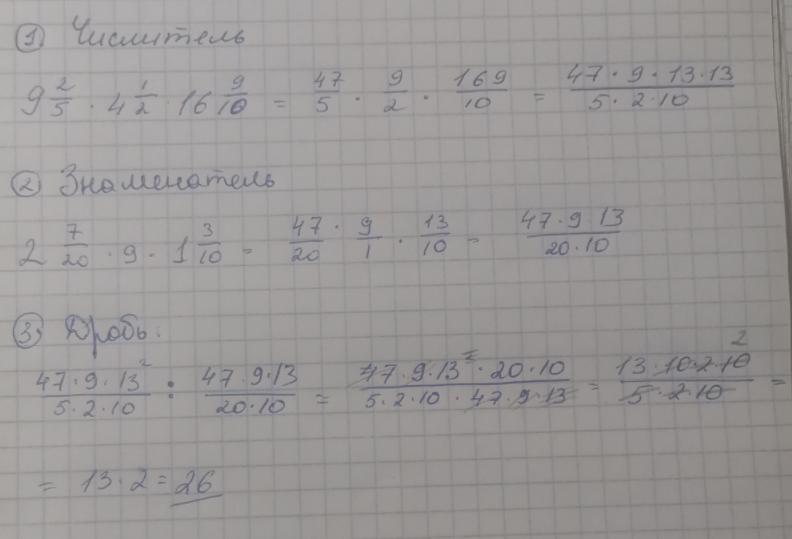 ① Числитель
9 2/5 · 4 1/2 · 16 9/10 = 47/5 · 9/2 · 169/10 = 47·9·13·13/5·2·10
② Знаменатель
2 7/20 · 9 · 1 3/10 = 47/20 · 9/1 · 13/10 = 47·9 13/20·10
③ Дробь:
47·9·13²/5·2·10 : 47·9·13/20·10 = 47·9·13²·20·10/5·2·10·47·9·13 = 13·10·2·10 2/5·2·10 =
= 13·2=26